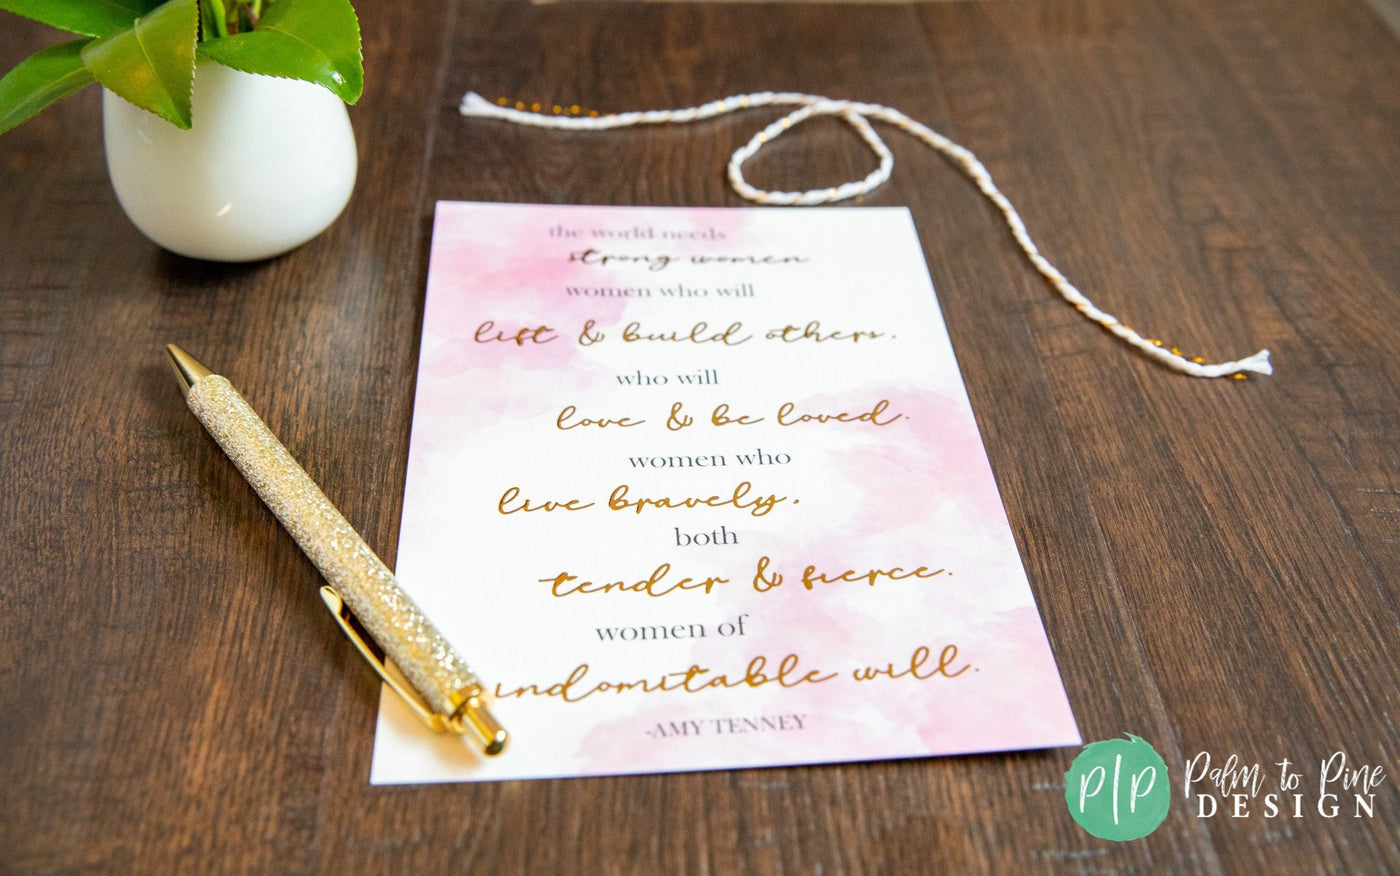 the world needs
strong women
women who will
lift & build others.
who will
love & be loved.
women who
live bravely.
both
tender & fierce.
women of
indomitable will.
-AMY TENNEY
P|P
Palm to Pine
DESIGN